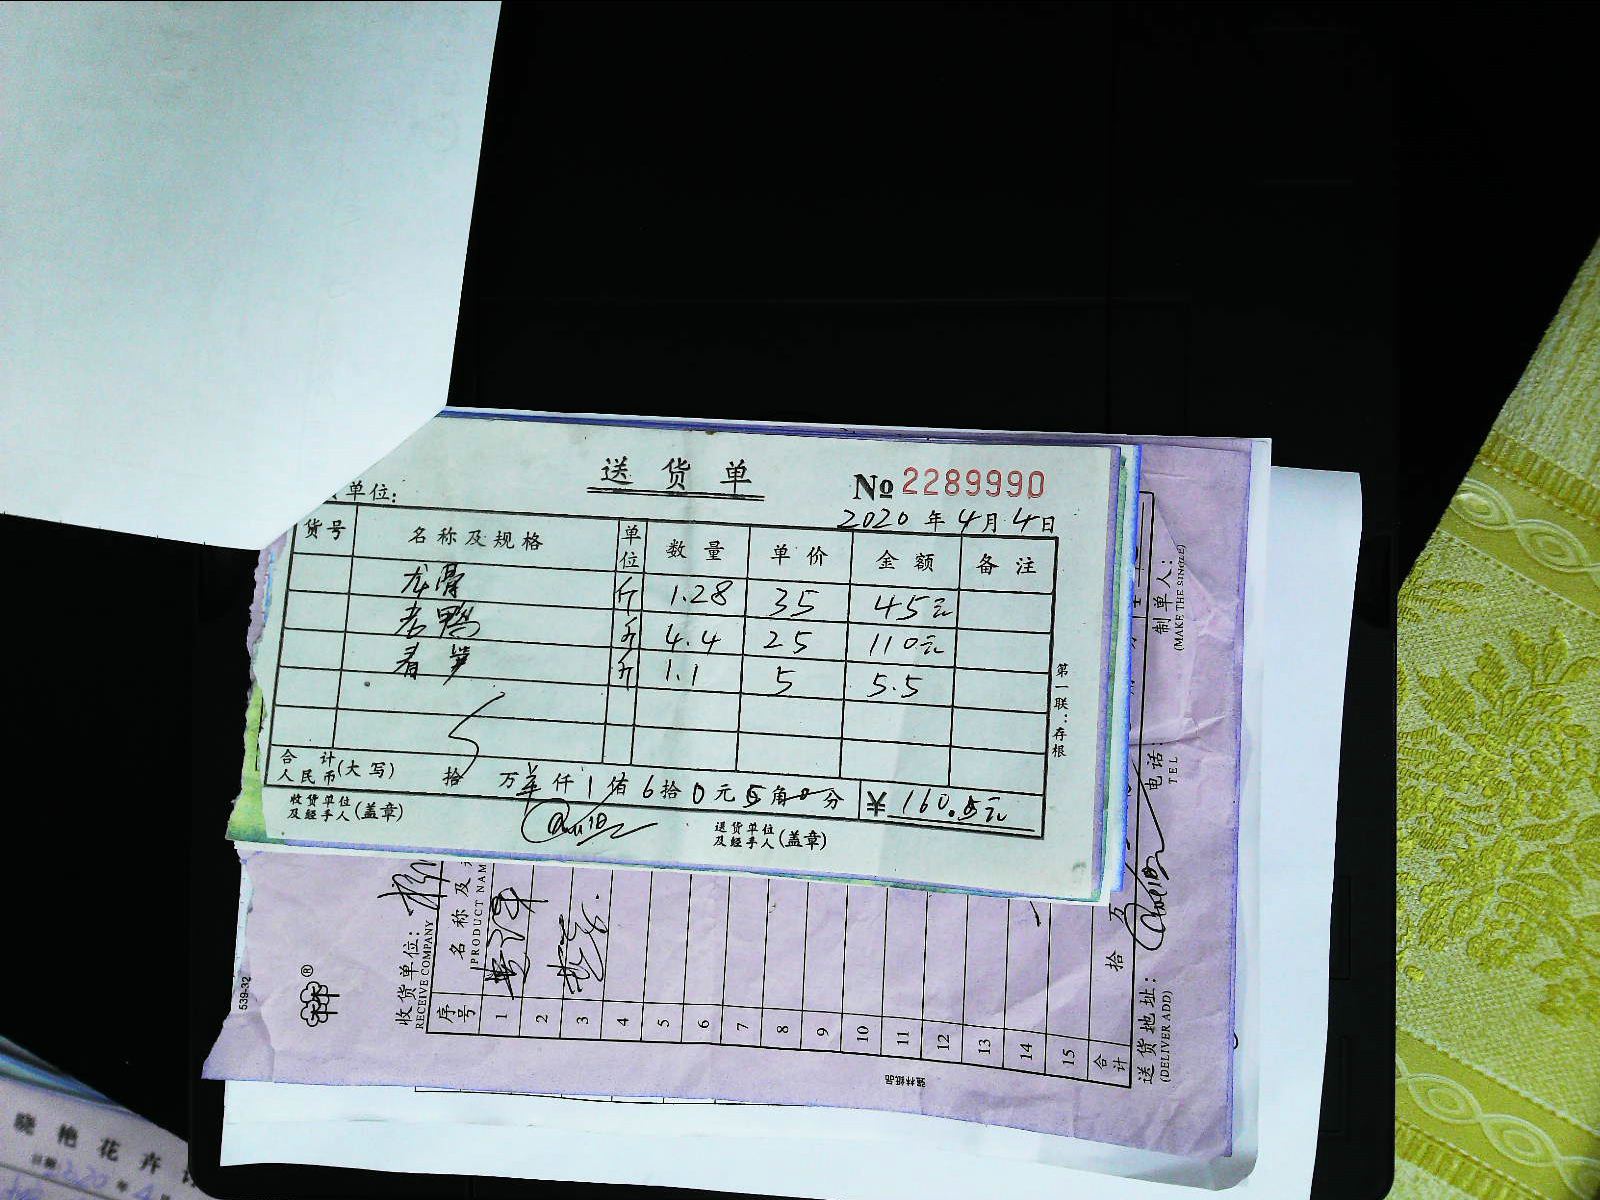 送货单
No 2289990
单位:
2020年4月4日
货号 名称及规格 单位 数量 单价 金额 备注
龙骨 斤 1.28 35 45元
老鸭 斤 4.4 25 110元
春笋 斤 1.1 5 5.5
合计人民币(大写) 拾 万 仟 1 佰 6 拾 0 元 5 角 0 分 ¥ 160.5元
收货单位及经手人(盖章)
送货单位及经手人(盖章)
第一联:存根
539-32
®
收货单位:
RECEIVE COMPANY
序号 名称及
PRODUCT NAM
1
2
3
4
5
6
7
8
9
10
11
12
13
14
15
合计 拾 万
送货地址:
(DELIVER ADD)
电话:
TEL
制单人:
(MAKE THE SINGLE)
晓艳花卉
日期 2020年4